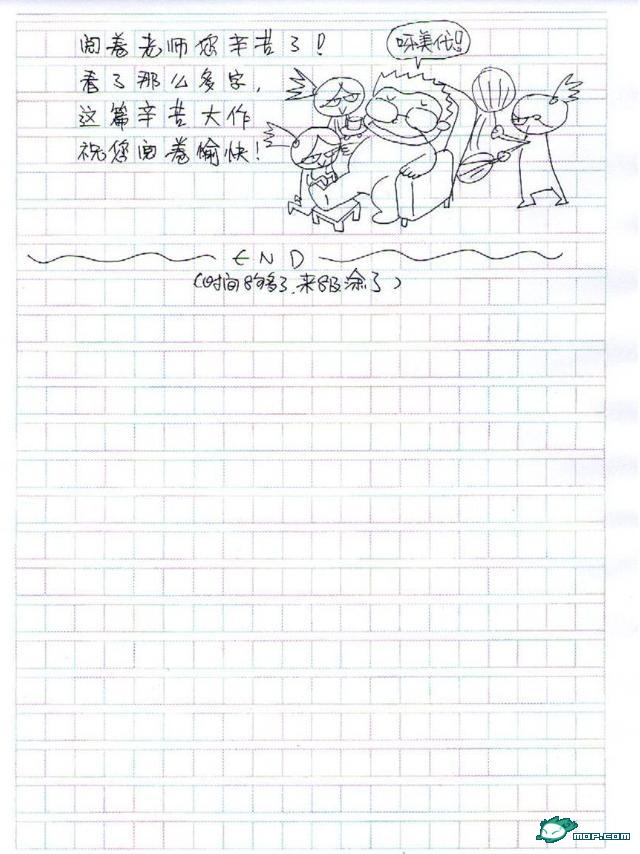 阅卷老师您辛苦了！
看了那么多字，
这篇辛苦大作
祝您阅卷愉快！
呀美代！！
END
（时间够了，来够涂了）
mop.com